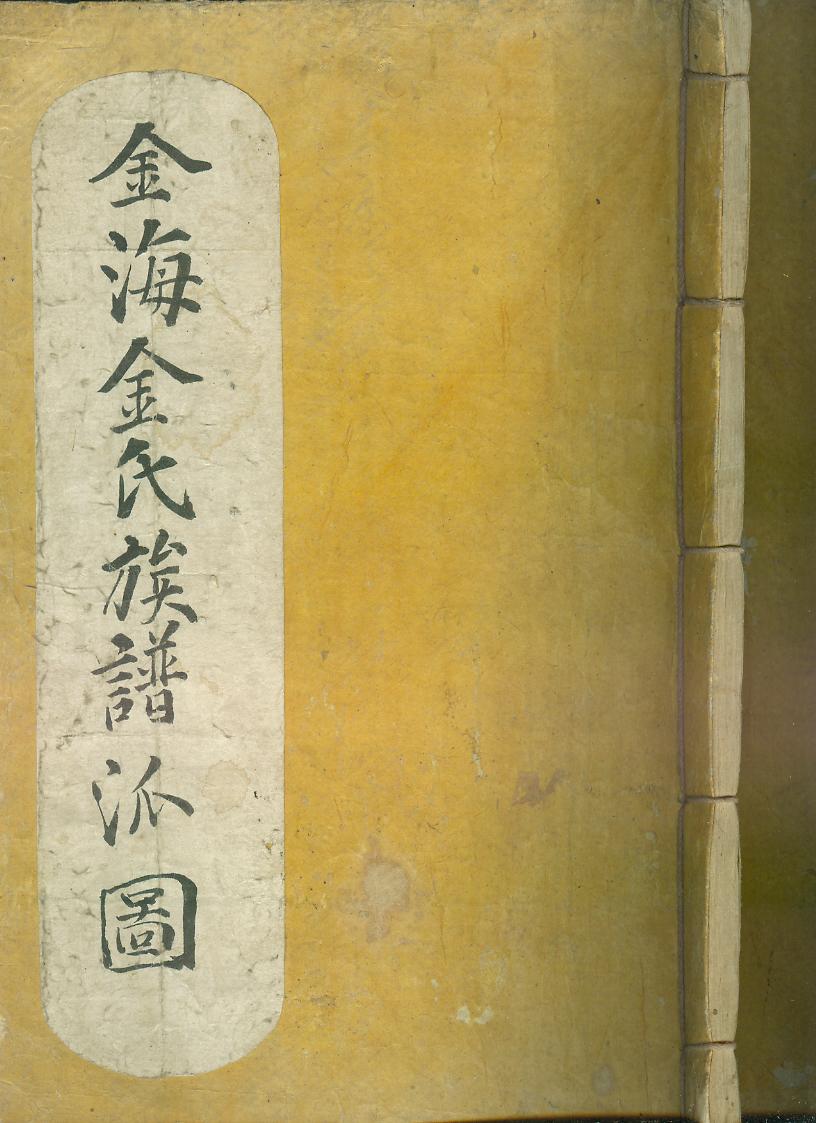 金海金氏族譜派圖